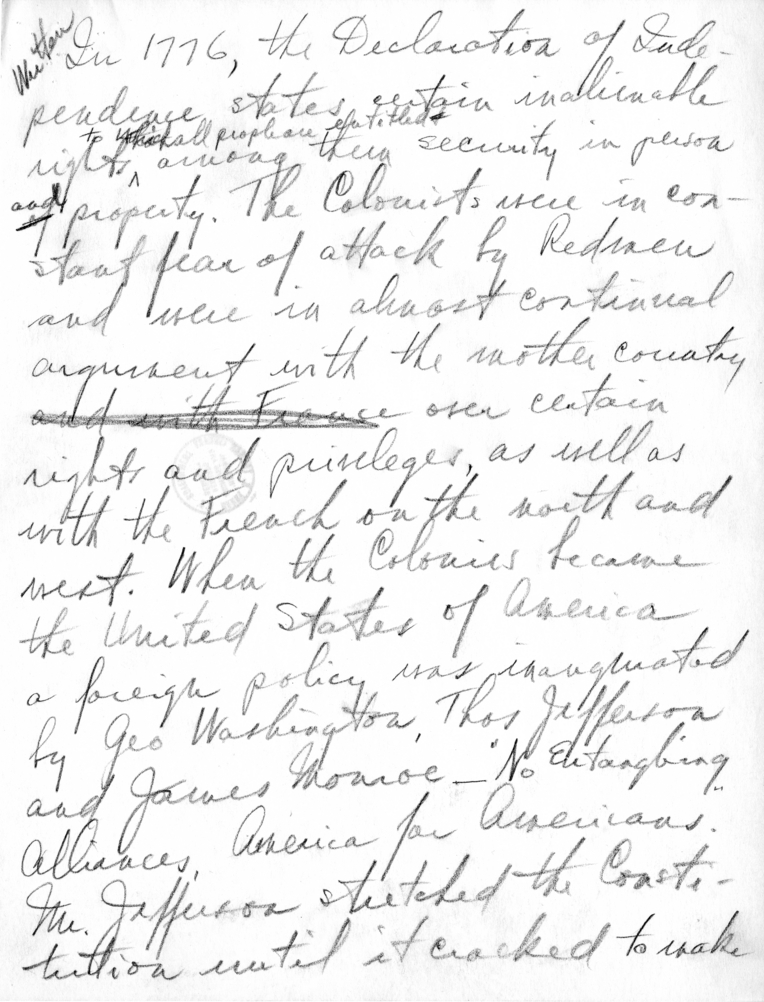 Written
In 1776, the Declaration of Inde-
pendence states certain inalienable
to which all people are entitled
rights, among them security in person
and property. The Colonists were in con-
stant fear of attack by Redmen
and were in almost continual
argument with the mother country
and with France over certain
rights and privileges, as well as
with the French on the north and
west. When the Colonies became
the United States of America
a foreign policy was inaugurated
by Geo Washington, Thos Jefferson
and James Monroe — "No Entangling
Alliances, America for Americans."
Mr. Jefferson stretched the Consti-
tution until it cracked to make